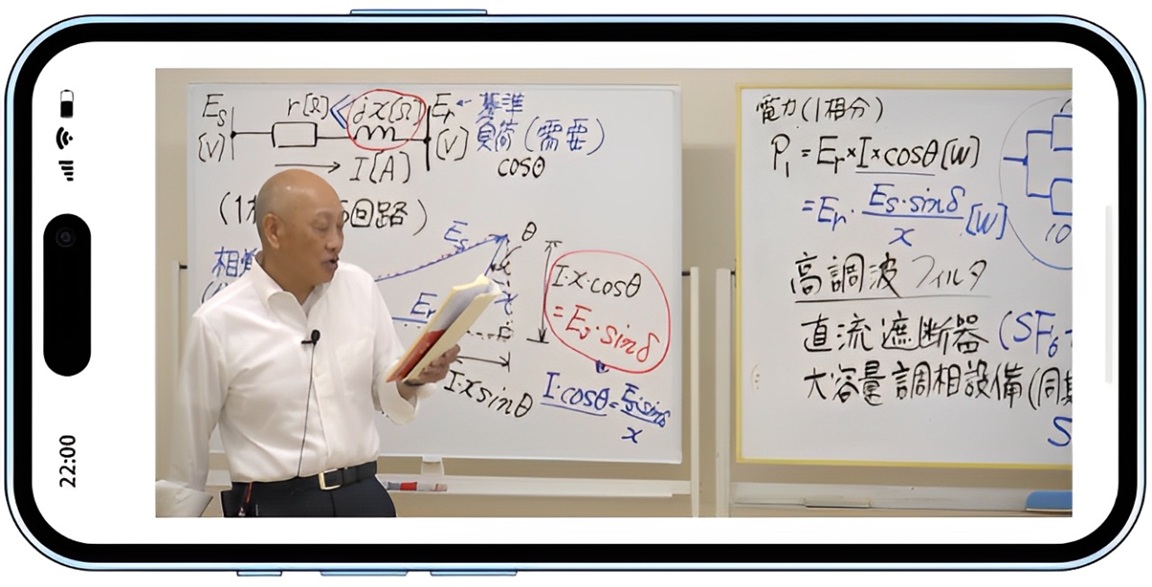 22:00
Es
[V]
r[Ω]
jx[Ω]
Er ← 基準
[V] 負荷(需要)
cosθ
I[A]
回路)
Es
θ
Er
x
I·x·cosθ
= Es·sinδ
I·xsinθ
I·cosθ = Es·sinδ
x
電力(1相分)
P1 = Er×I×cosθ[W]
= Er· Es·sinδ [W]
x
10
高調波フィルタ
直流遮断器(SF6
大容量調相設備(同期
S